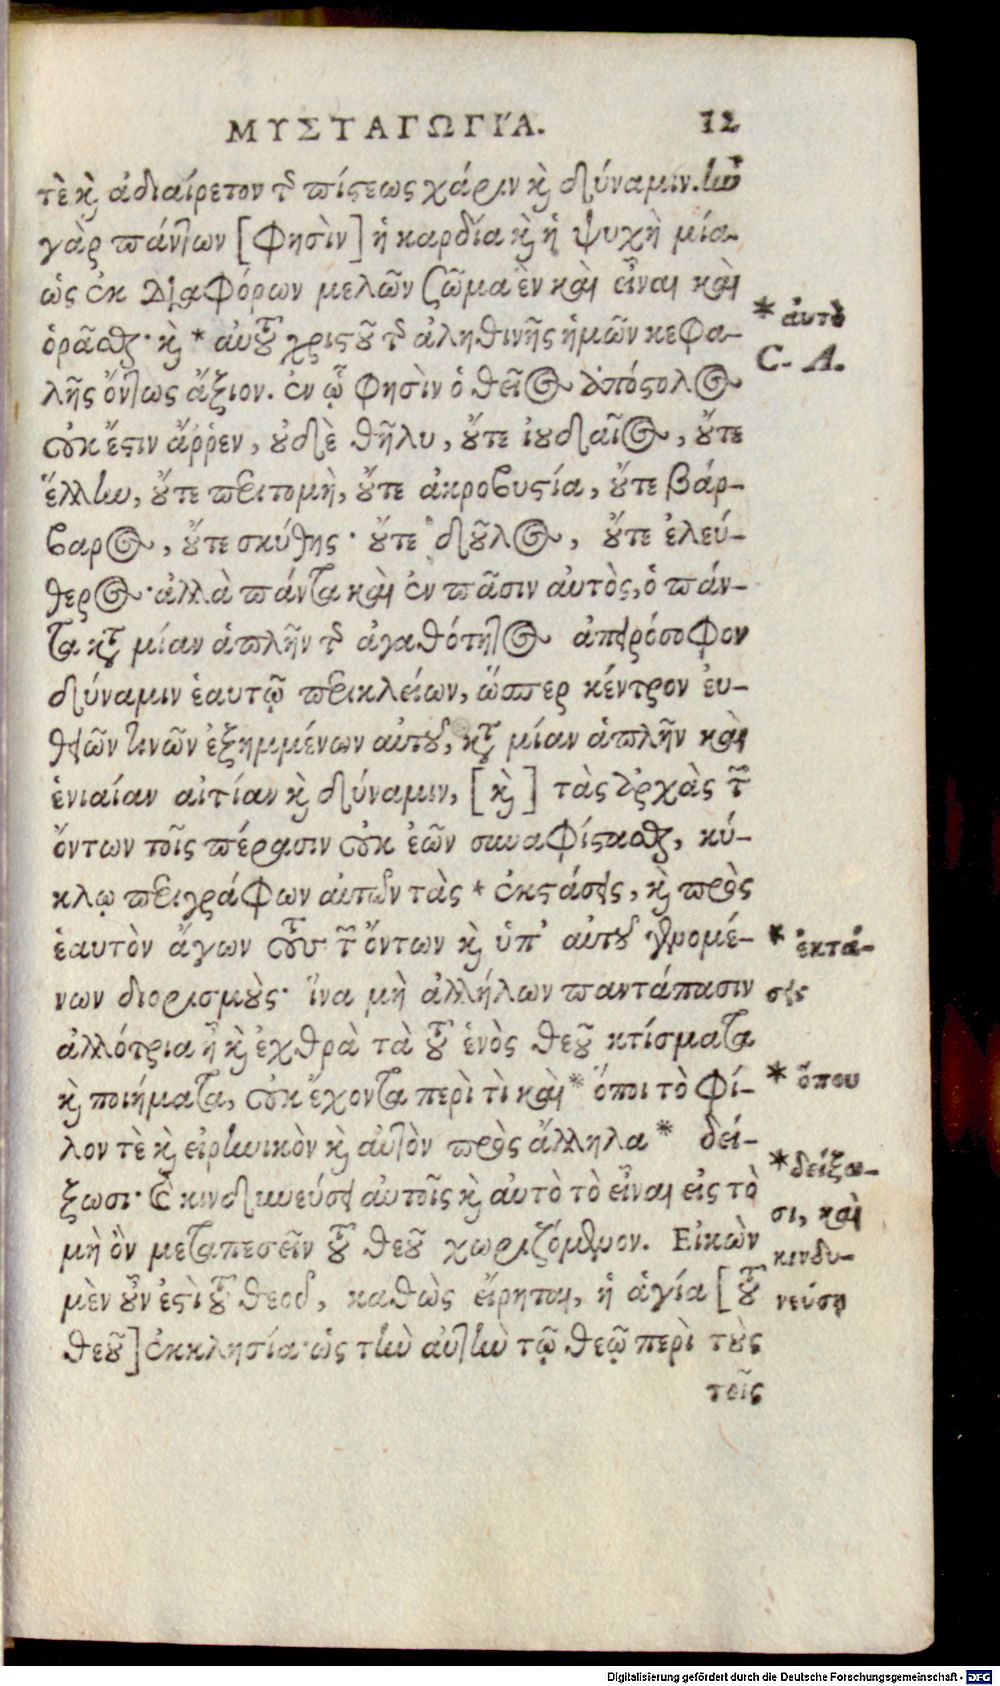 ΜΥΣΤΑΓΩΓΙΆ. 12
τὲ κỳ ἀδιαίρετον τῆς πίστεως χάριν κỳ δύναμιν. ἦν
γὰρ πάντων [φησὶν] ἡ καρδία κỳ ἡ ψυχὴ μία
ὡς ἐκ διαφόρων μελῶν σῶμα ἓν καὶ εἶναι καὶ
ὁρᾶσθαι· κỳ * αὐτοῦ χριστοῦ τῆς ἀληθινῆς ἡμῶν κεφα-
λῆς ὄντως ἄξιον. ἐν ᾧ φησὶν ὁ θεῖος ἀπόστολος
οὐκ ἔστιν ἄρρεν, οὐδὲ θῆλυ, οὔτε ἰουδαῖος, οὔτε
ἕλλην, οὔτε περιτομὴ, οὔτε ἀκροβυστία, οὔτε βάρ-
βαρος, οὔτε σκύθης· οὔτε δοῦλος, οὔτε ἐλεύ-
θερος· ἀλλὰ πάντα καὶ ἐν πᾶσιν αὐτὸς, ὁ πάν-
τα κατὰ μίαν ἁπλῆν τῆς ἀγαθότητος ἀπειρόσοφον
δύναμιν ἑαυτῷ περικλείων, ὥσπερ κέντρον εὐ-
θειῶν τινῶν ἐξημμένων αὐτοῦ, κατὰ μίαν ἁπλῆν καὶ
ἑνιαίαν αἰτίαν κỳ δύναμιν, [κỳ] τὰς ἀρχὰς τῶν
ὄντων τοῖς πέρασιν οὐκ ἐῶν συναφίστασθαι, κύ-
κλῳ περιγράφων αὐτῶν τὰς * ἐκστάσεις, κỳ πρὸς
ἑαυτὸν ἄγων τοὺς τῶν ὄντων κỳ ὑπ' αὐτοῦ γενομέ-
νων διορισμούς· ἵνα μὴ ἀλλήλων παντάπασιν
ἀλλότρια ᾖ κỳ ἐχθρὰ τὰ τοῦ ἑνὸς θεοῦ κτίσματα
κỳ ποιήματα, οὐκ ἔχοντα περὶ τὶ καὶ * ὅποι τὸ φί-
λον τὲ κỳ εἰρηνικὸν κỳ αὐτὸν πρὸς ἄλληλα * δεί-
ξωσι· κινδυνεύσῃ αὐτοῖς κỳ αὐτὸ τὸ εἶναι εἰς τὸ
μὴ ὂν μεταπεσεῖν τοῦ θεοῦ χωριζόμενον. Εἰκὼν
μὲν οὖν ἐστὶ τοῦ θεοῦ, καθὼς εἴρηται, ἡ ἁγία [τοῦ
θεοῦ] ἐκκλησία· ὡς τὴν αὐτὴν τῷ θεῷ περὶ τοὺς
τοῖς
* αὐτὸ
C. A.
* ἐκτά-
σεις
* ὅπου
* δείξω-
σι, καὶ
κινδυ-
νεύσῃ
Digitalisierung gefördert durch die Deutsche Forschungsgemeinschaft - DFG